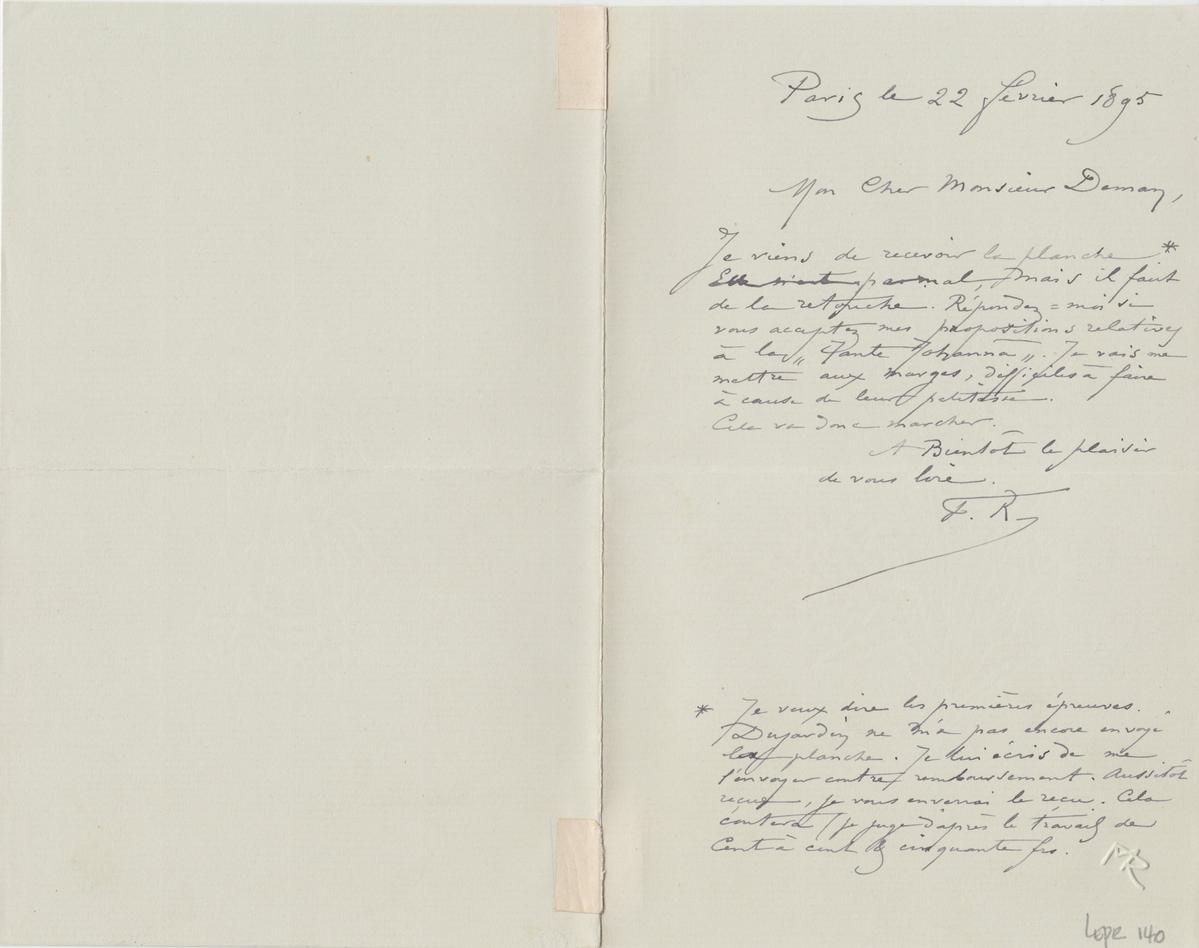 Paris le 22 février 1895
Mon Cher Monsieur Deman,
Je viens de recevoir la planche *
Elle n'est pas mal, mais il faut
de la retouche. Répondez=moi si
vous acceptez mes propositions relatives
à la „ Tante Johanna „. Je vais me
mettre aux marges, difficiles à faire
à cause de leur petitesse.
Cela va donc marcher.
A Bientôt le plaisir
de vous lire.
F. R
* Je veux dire les premières épreuves.
Dujardin ne m'a pas encore envoyé
la planche. Je lui écris de me
l'envoyer contre remboursement. Aussitôt
reçue, je vous enverrai le reçu. Cela
coutera (je juge d'après le travail de
Cent à cent & cinquante frs.
MR
LEpR 140